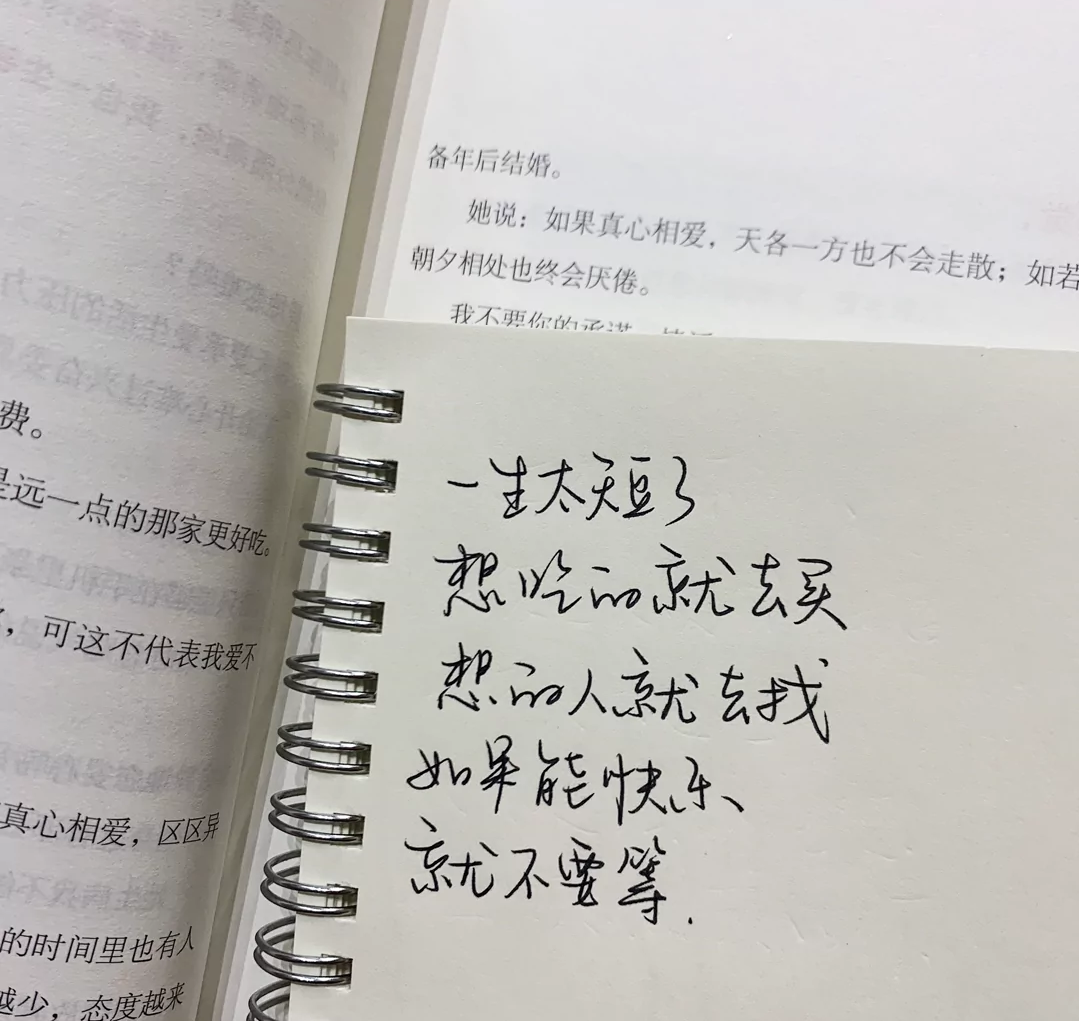 费。
是远一点的那家更好吃。
，可这不代表我爱不
真心相爱，区区异
的时间里也有人
减少，态度越来
备年后结婚。
她说：如果真心相爱，天各一方也不会走散；如若
朝夕相处也终会厌倦。
我不要你的承诺
一生太短了
想吃的就去买
想的人就去找
如果能快乐、
就不要等.